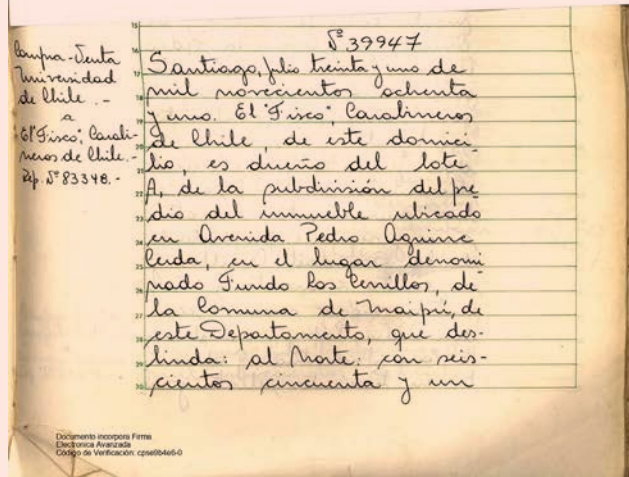 Compra-Venta
Universidad
de Chile.-
a
"El Fisco", Carabi-
neros de Chile.-
Rep. Nº 83348.-
Nº 39947
Santiago, julio treinta y uno de
mil novecientos ochenta
y uno. El "Fisco", Carabineros
de Chile, de este domici-
lio, es dueño del lote
A, de la subdivisión del pre
dio del inmueble ubicado
en Avenida Pedro Aguirre
Cerda, en el lugar denomi
nado Fundo Los Cerrillos, de
la Comuna de Maipú, de
este Departamento, que des-
linda: al Norte: con seis-
cientos cincuenta y un
15
16
17
18
19
20
21
22
23
24
25
26
27
28
29
30
Documento incorpora Firma
Electronica Avanzada
Código de Verificación: cpse9b4e6-0